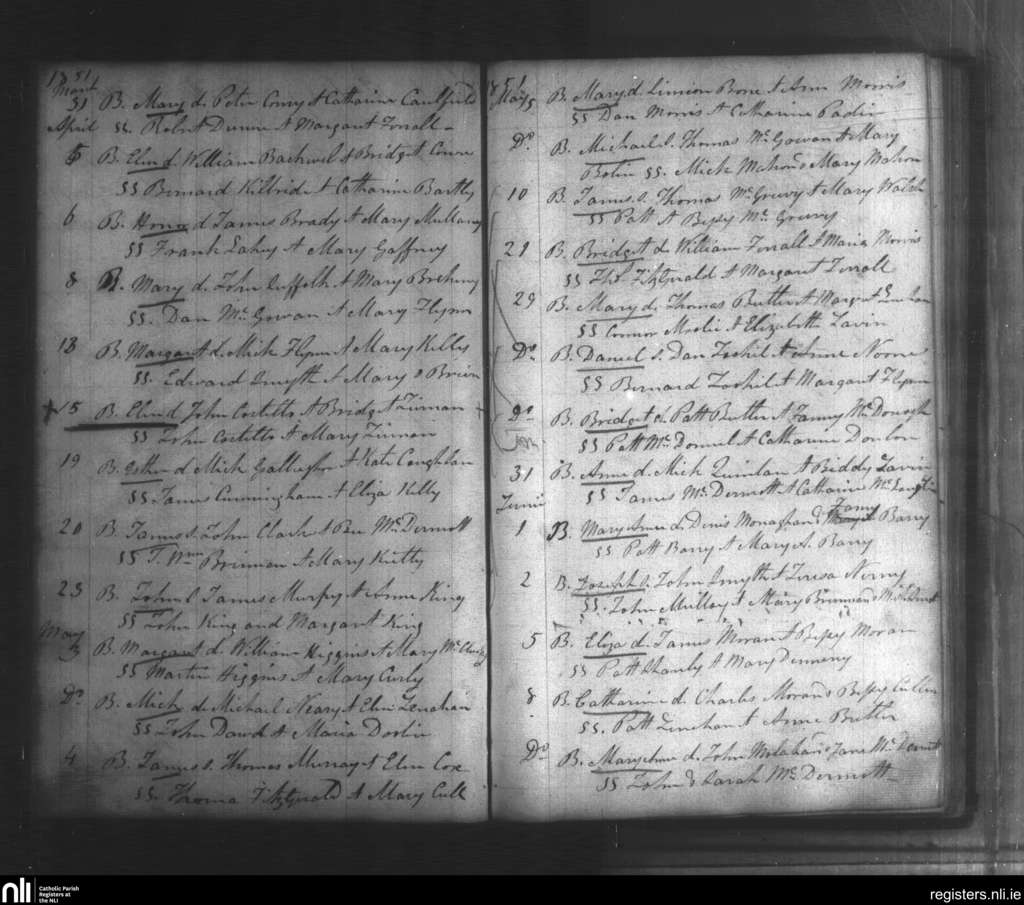 1851
March
31 B. Mary d. Peter Conry & Catharine Caulfield
April ss. Robert Dunne & Margaret Ferrall
5 B. Elen d William Bachwel & Bridget
ss Bernard Kilbride & Catharine Bartley
6 B. Honor d James Brady & Mary Mullany
ss Frank Lahey & Mary Gaffney
8 B. Mary d. John & Mary Breheny
ss. Dan Mc Gowan & Mary Flynn
13 B. Margaret d. Mick Flynn & Mary Killes
ss. Edward Smyth & Mary O Brien
15 B. Elen d John Costello & Bridget Tiernan
ss John Costello & Mary Tiernan
19 B. d Mick Gallagher & Kate Coughlan
ss. James Cunningham & Eliza Kelly
20 B. James s. John Clark & Bee Mc Dermott
ss T. Wm Brinnan & Mary Kielty
23 B. John s James Murpey & Anne King
ss John King and Margaret King
May
3 B. Margaret d. William Higgins & Mary
ss Martin Higgins & Mary Curly
Do B. Mich d. Michael Neary & Elen Lenahan
ss John Dowd & Maria Doolin
4 B. James s. Thomas Murray & Elen Cox
ss. Thoma Fitzgerald & Mary Cull
1851
May 5 B. Mary d. Simion Bone & Ann Morris
ss Dan Morris & Catharine Padin
Do B. Michael s. Thomas Mc Gowan & Mary
ss. Mick Mahon & Mary Mahon
10 B. James s. Thomas Mc Greevy & Mary Walsh
ss Patt & Bepey Mc Greevy
21 B. Bridget d. William Ferrall & Maria Morris
ss Thos Fitzgerald & Margaret Ferrall
29 B. Mary d. Thomas Butler & Margaret
ss Connor & Elizabeth Lavin
Do B. Daniel s. Dan & Anne Noone
ss Bernard & Margaret Flynn
Do B. Bridget d. Patt Butler & Fanny Mc Donogh
ss Patt Mc Donnel & Catharine Donlon
31 B. Anne d. Mick Quinlan & Biddy Lavin
ss James Mc Dermott & Catharine Mc Loughlin
Junii
1 B. Mary Anne d. Denis Monaghan & Fanny Barry
ss. Patt Barry & Mary A. Barry
2 B. Joseph s. John Smyth & Teresa Nerny
ss. John Mulloy & Mary Brennan
5 B. Eliza d. James Moran & Bepey Moran
ss Patt Shanly & Mary Denneny
8 B. Catharine d. Charles Moran & Bepey Cullen
ss. Patt Linehan & Anne Butler
Do B. Mary Anne d. John & Jane Mc Dermott
ss John & Sarah Mc Dermott
nli Catholic Parish
Registers at
the NLI
registers.nli.ie